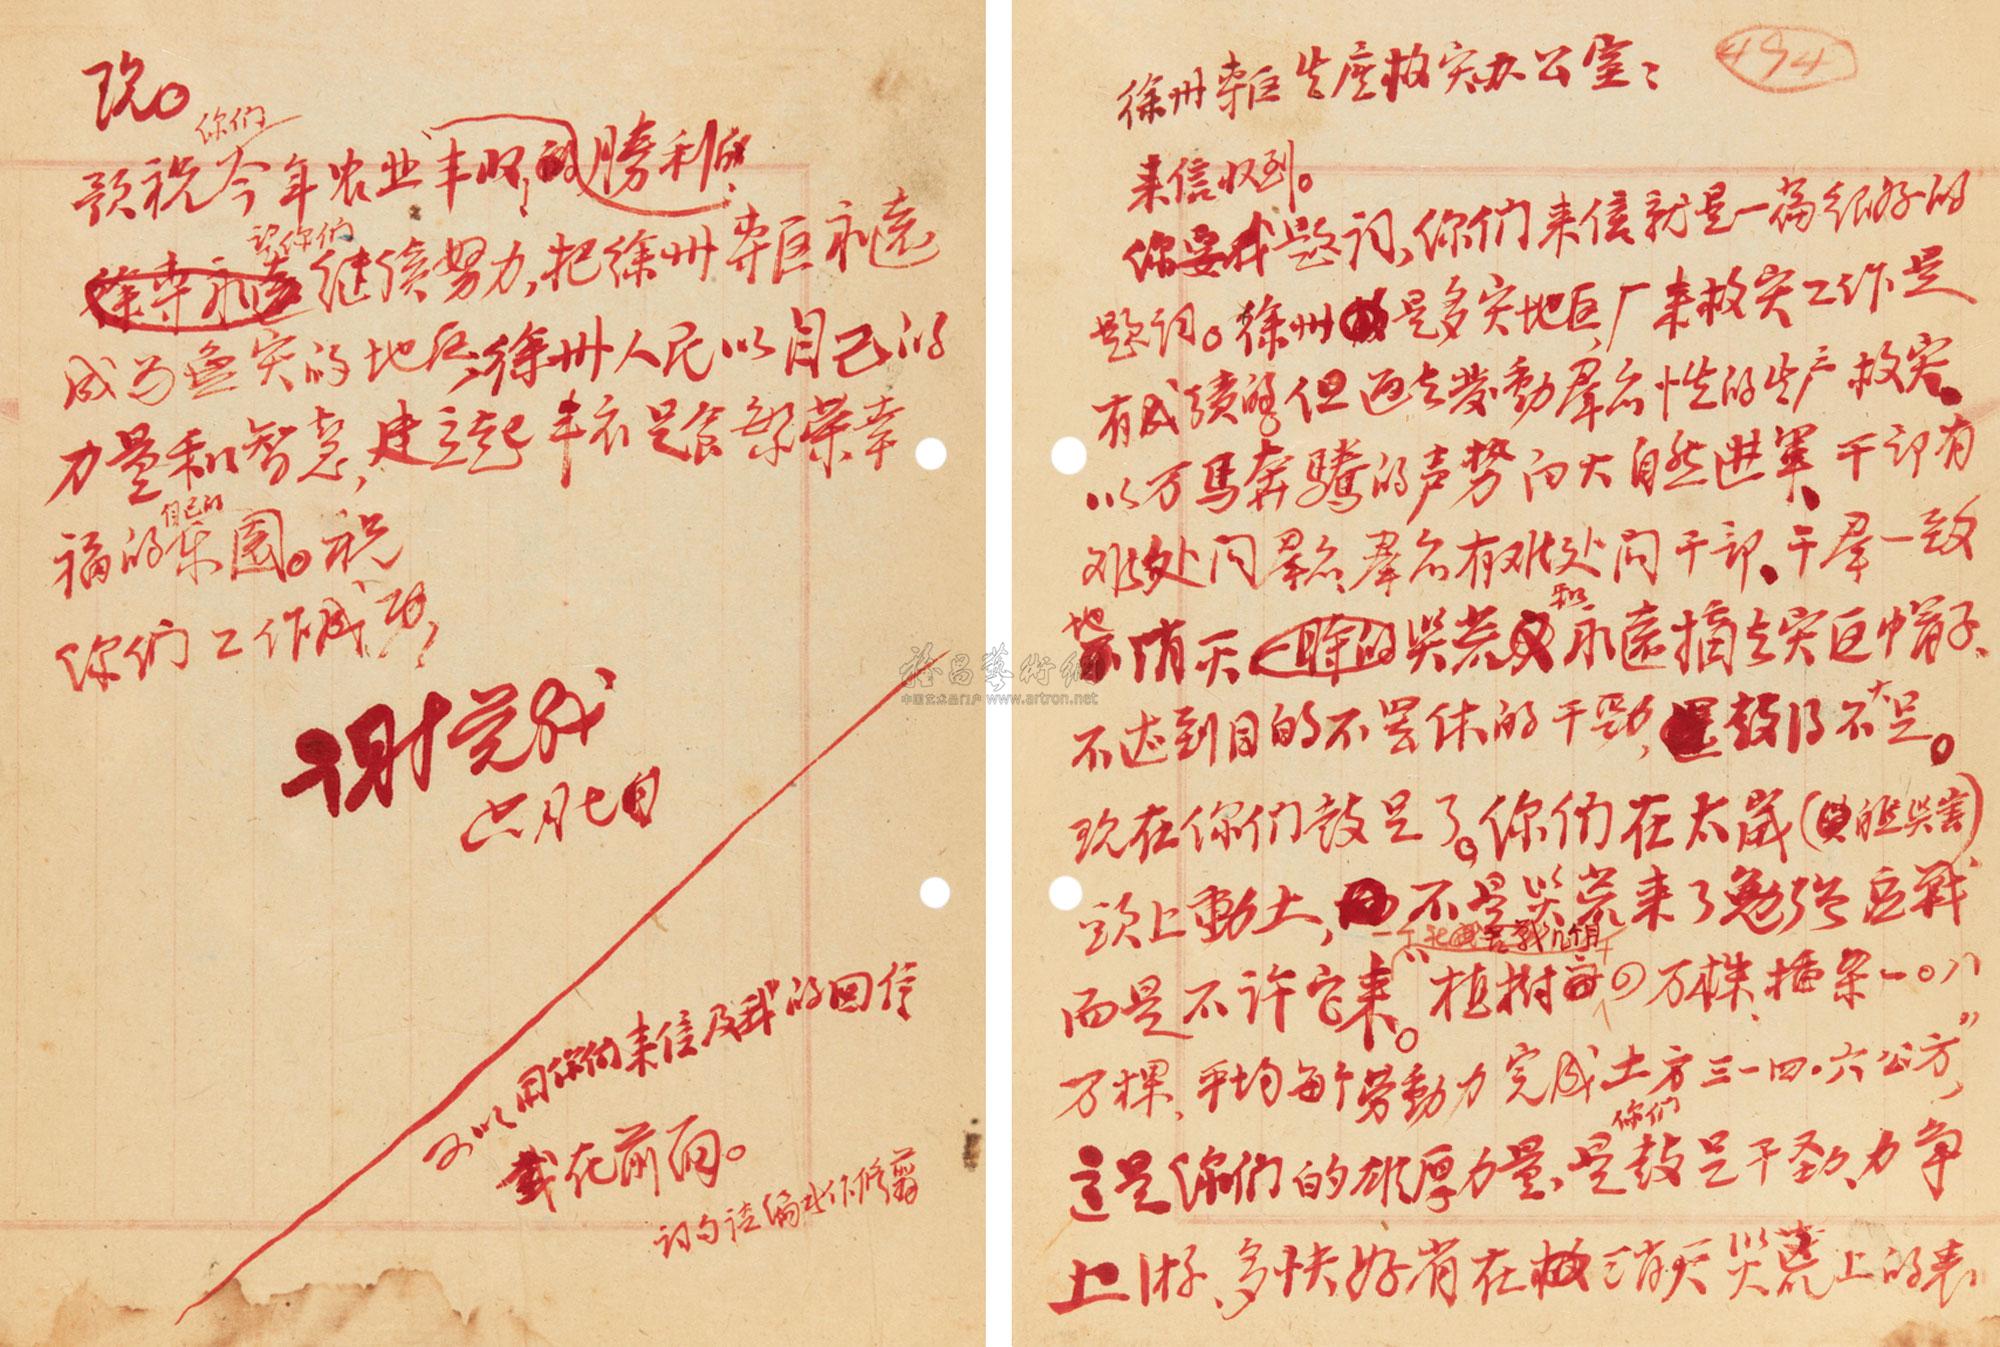 494
徐州专区生产救灾办公室：
来信收到。
你要我题词，你们来信就是一篇很好的
题词。徐州是多灾地区，厂来救灾工作是
有成绩的，但过去发動羣众性的生产救灾。
以万馬奔騰的声势向大自然進軍、干部有
难处问羣众，羣众有难处问干部、干羣一致
地消灭災荒和永遠摘去灾区帽子、
不达到目的不罢休的干劲，鼓得不大足。
现在你们鼓足了。你们在太歲（自然災害）
頭上動土，不是災荒来了勉强应戰
而是不许它来。“植樹 万株，插条一〇八
万棵，平均每个劳動力完成土方三一四·六公方”，
這是你们的雄厚力量，是你们鼓足干劲、力争
上游、多快好省在消灭災荒上的表
现。
预祝你们今年农业丰收的勝利
望你们继续努力，把徐州专区永遠
成为無灾的地区，徐州人民以自己的
力量和智慧，建立起丰衣足食繁荣幸
福的自己的乐園。祝
你们工作成功，
谢觉哉
六月七日
可以用你们来信及我的回信
載在前面。
词句请编者作修剪
中国艺术品门户 www.artron.net